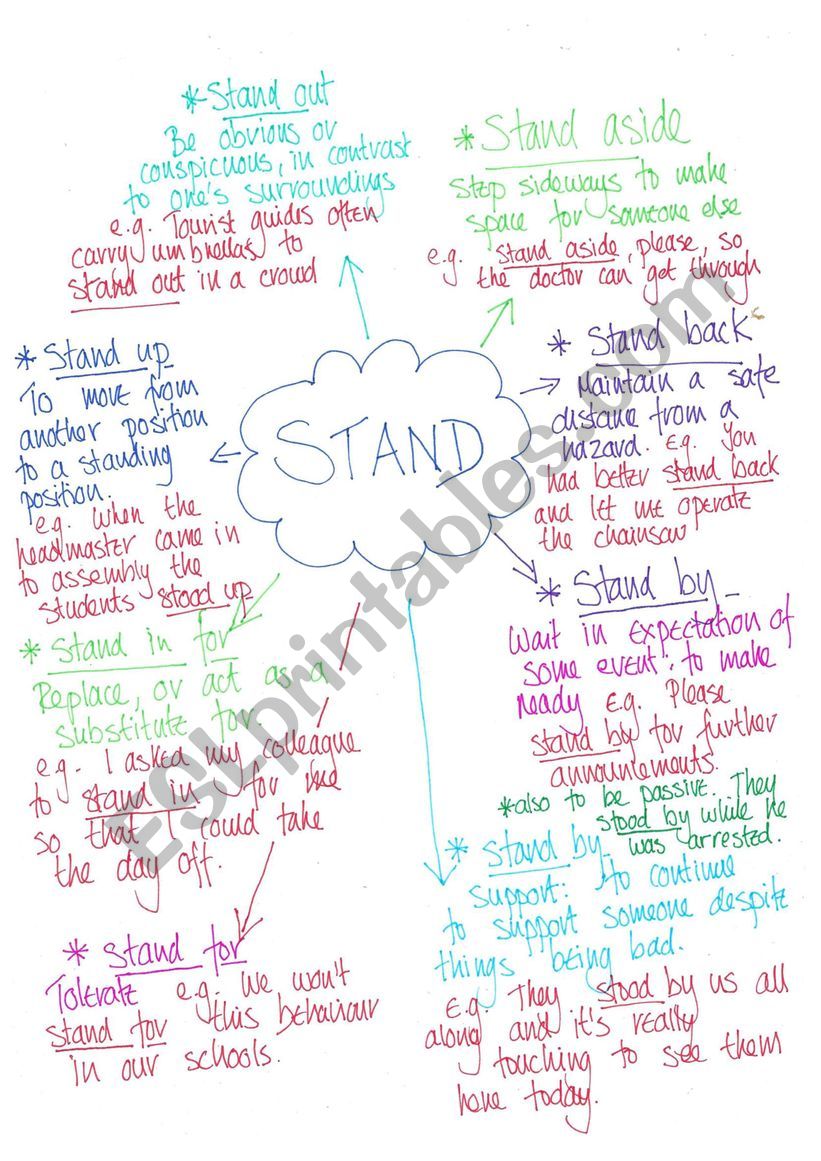 *Stand out
Be obvious or
conspicuous, in contrast
to one's surroundings
e.g. Tourist guides often
carry umbrellas to
stand out in a crowd
* Stand aside
Step sideways to make
space for someone else
e.g. stand aside, please, so
the doctor can get through
* Stand up
To move from
another position
to a standing
position.
e.g. when the
headmaster came in
to assembly the
students stood up
STAND
* Stand back
Maintain a safe
distance from a
hazard. E.g. You
had better stand back
and let me operate
the chainsaw
* Stand by
Wait in expectation of
some event: to make
ready E.g. Please
stand by for further
announcements.
*also to be passive. They
stood by while he
was arrested.
* Stand in for
Replace, or act as a
substitute for.
e.g. I asked my colleague
to stand in for me
so that I could take
the day off.
* Stand by
support: to continue
to support someone despite
things being bad.
E.g. They stood by us all
along and it's really
touching to see them
here today.
* Stand for
Tolerate e.g. We won't
stand for this behaviour
in our schools.
ESLprintables.com